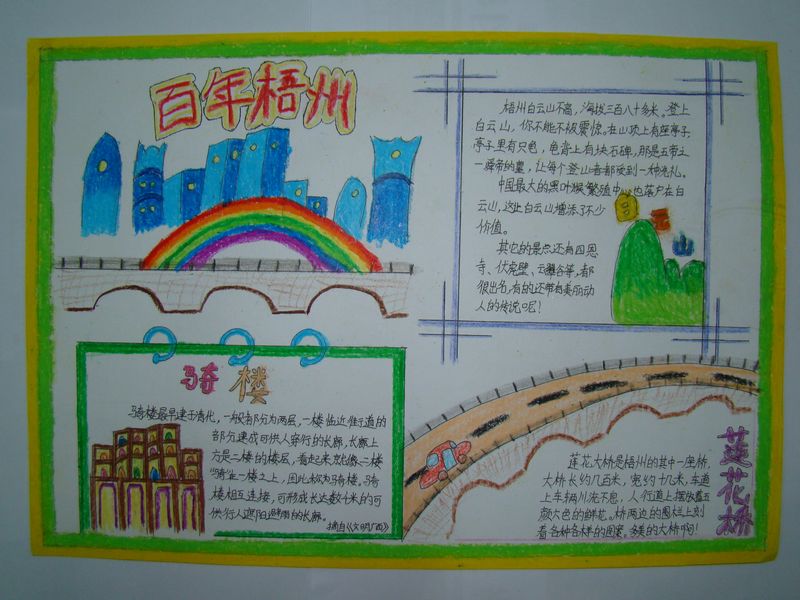 百年梧州
梧州白云山不高，海拔三百八十多米。登上
白云山，你不能不被震惊。在山顶上有座亭子
亭子里有只龟，龟背上有块石碑，那是五帝之
一舜帝的墓，让每个登山者都受到一种洗礼。
中国最大的黑叶猴繁殖中心也落户在白
云山，这让白云山增添了不少
价值。
其它的景点还有四恩
寺、伏虎壁、云雕谷等，都
很出名，有的还带有美丽动
人的传说呢！
白
云
山
骑楼
骑楼最早建于清代，一般都分为两层，一楼临近街道的
部分建成可供人穿行的长廊，长廊上
方是二楼的楼层，看起来就像二楼
"骑"在一楼之上，因此称为骑楼。骑
楼相互连接，可形成长达数十米的可
供行人遮阳避雨的长廊。
摘自《文明广西》
莲花桥
莲花大桥是梧州的其中一座桥，
大桥长约几百米，宽约十几米，车道
上车辆川流不息，人行道上摆放着五
颜六色的鲜花。桥两边的围栏上刻
着各种各样的图案。多美的大桥啊！